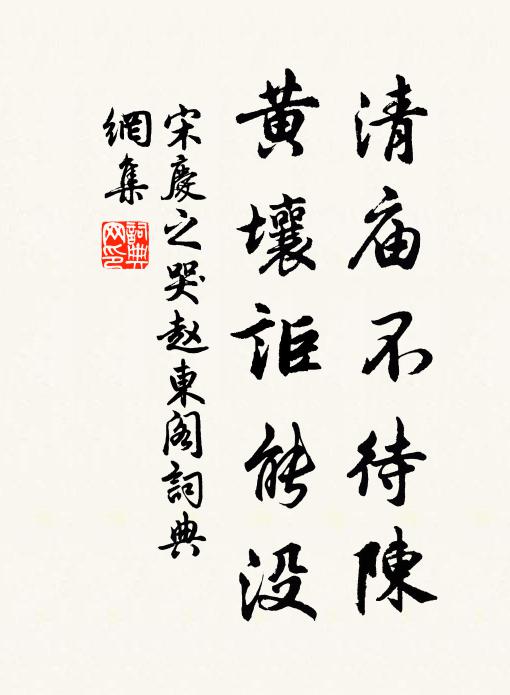 清庙不待陳
黄壤詎能没
宋慶之哭赵東阁詞典
網集
詞典
网印